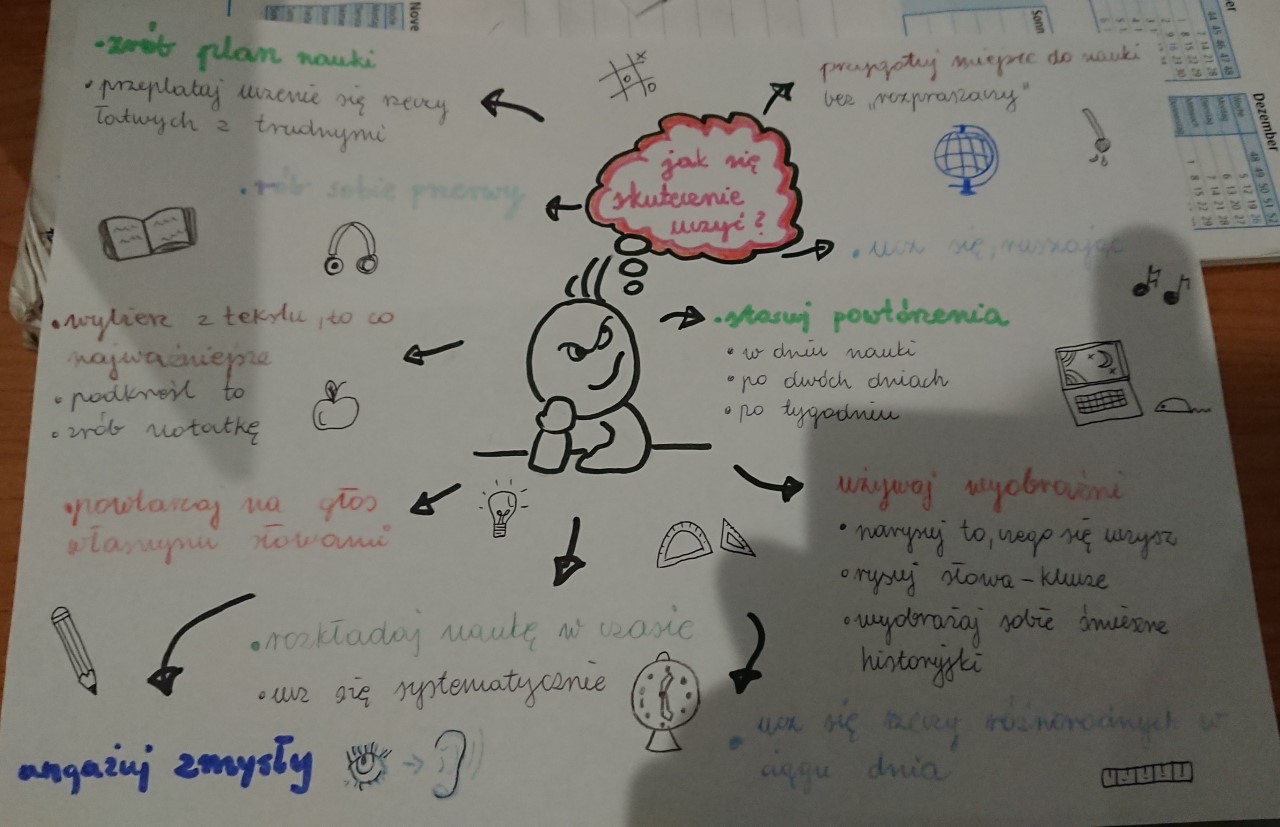 jak się
skutecznie
uczyć?
• zrób plan nauki
• przeplataj uczenie się rzeczy
łatwych z trudnymi
• rób sobie przerwy
• wybierz z tekstu, to co
najważniejsze
• podkreśl to
• zrób notatkę
• powtarzaj na głos
własnymi słowami
• rozkładaj naukę w czasie
• ucz się systematycznie
angażuj zmysły
przygotuj miejsc do nauki
bez „rozpraszaczy”
• ucz się, ruszając
• stosuj powtórzenia
• w dniu nauki
• po dwóch dniach
• po tygodniu
używaj wyobraźni
• narysuj to, czego się uczysz
• rysuj słowa-klucze
• wyobrażaj sobie śmieszne
historyjki
• ucz się rzeczy różnorodnych w
ciągu dnia
Nove
Sonn
Dezember
48 49 50 51 52